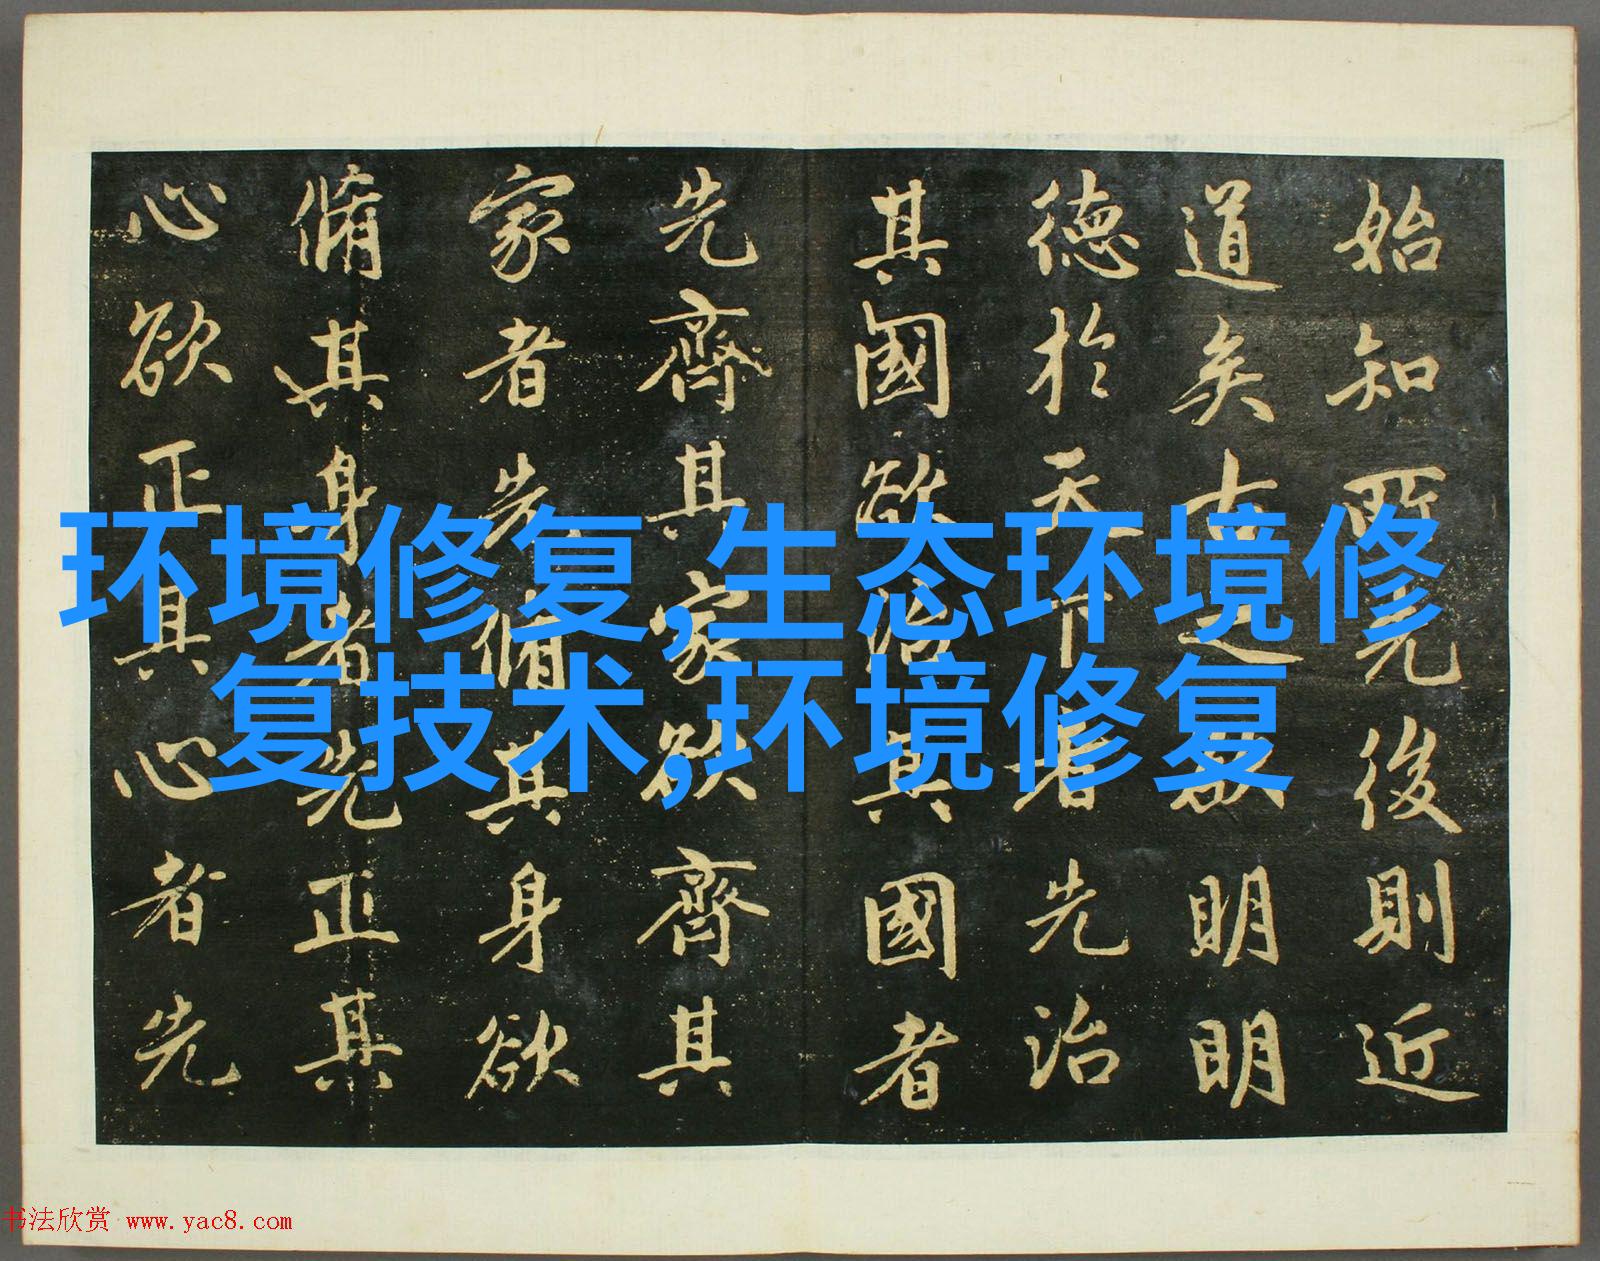 始知所先後則近
道矣古之欲明明
德於天下者先治
其國欲治其國者
先齊其家欲齊其
家者先脩其身欲
脩其身者先正其
心欲正其心者先
环境修复,生态环境修
复技术,环境修复
书法欣赏 www.yac8.com